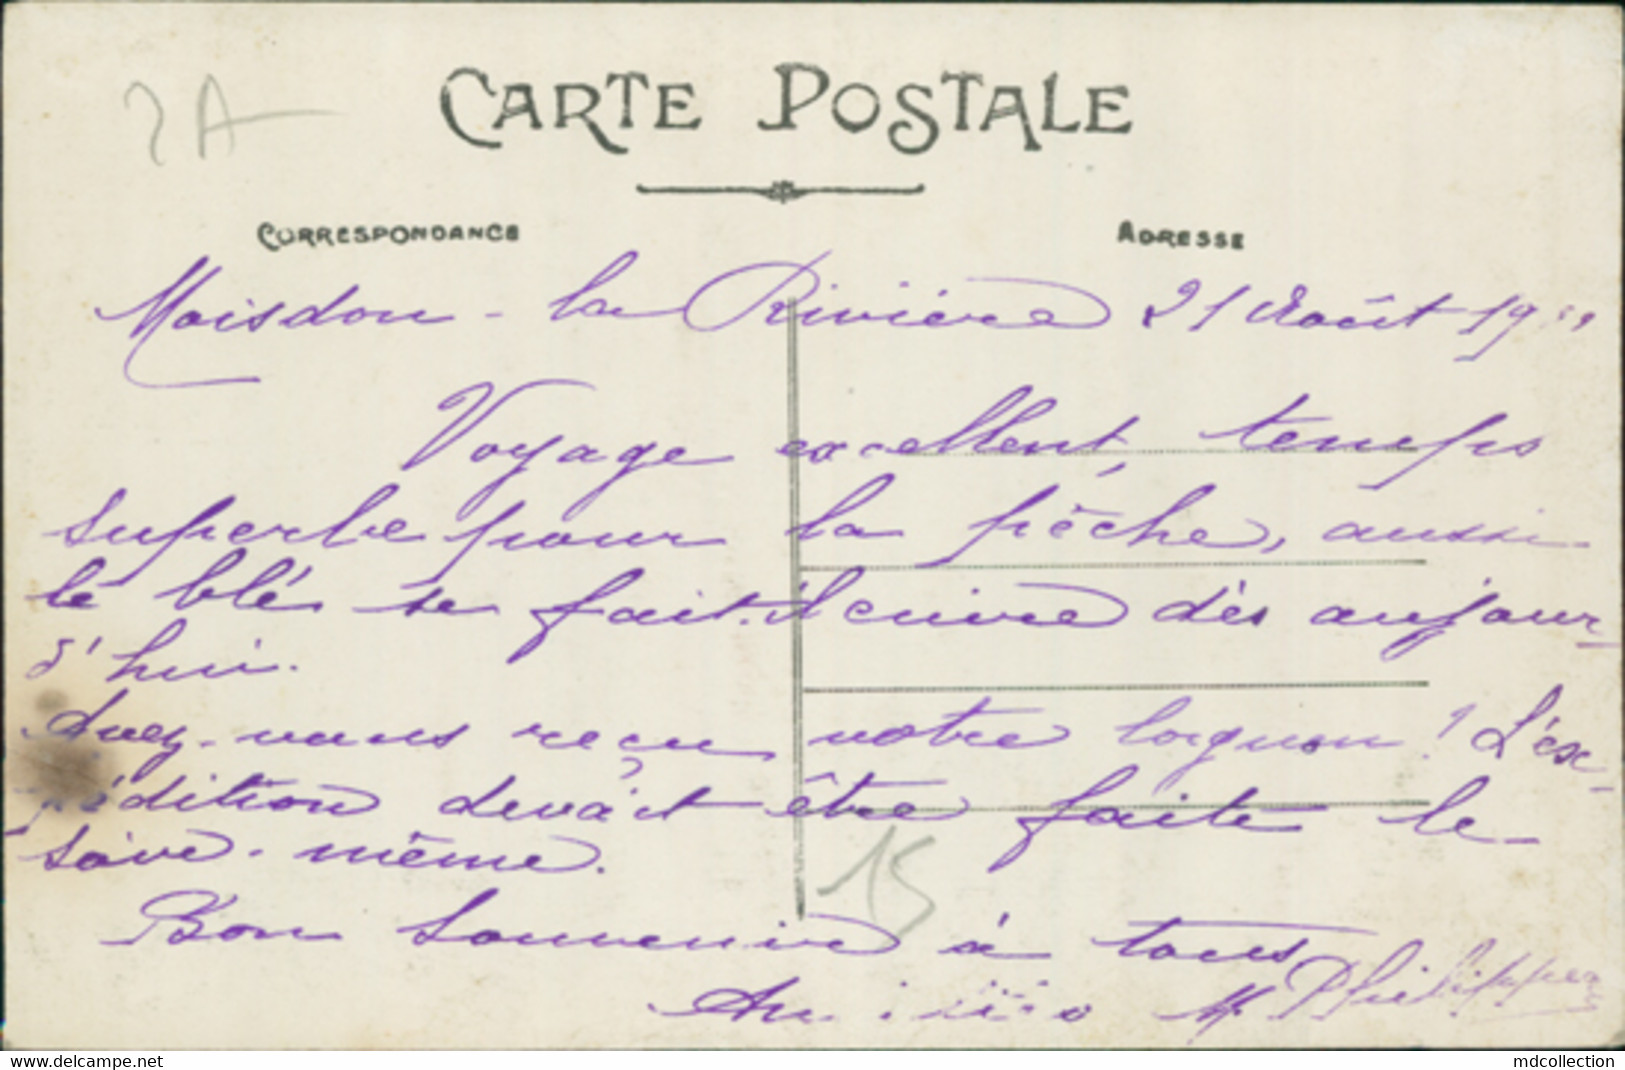 2A
CARTE POSTALE
CORRESPONDANCE
ADRESSE
Moisdon-la Rivière 21 Août 19
Voyage excellent, temps
superbe pour la pêche, aussi
le blé se fait-il cuire dès aujour-
d'hui.
Avez-vous reçu votre lorgnon? L'ex-
pédition devait être faite le
soir-même.
15
Bon souvenir à tous
M. Philippe
mdcollection
delcampe.net